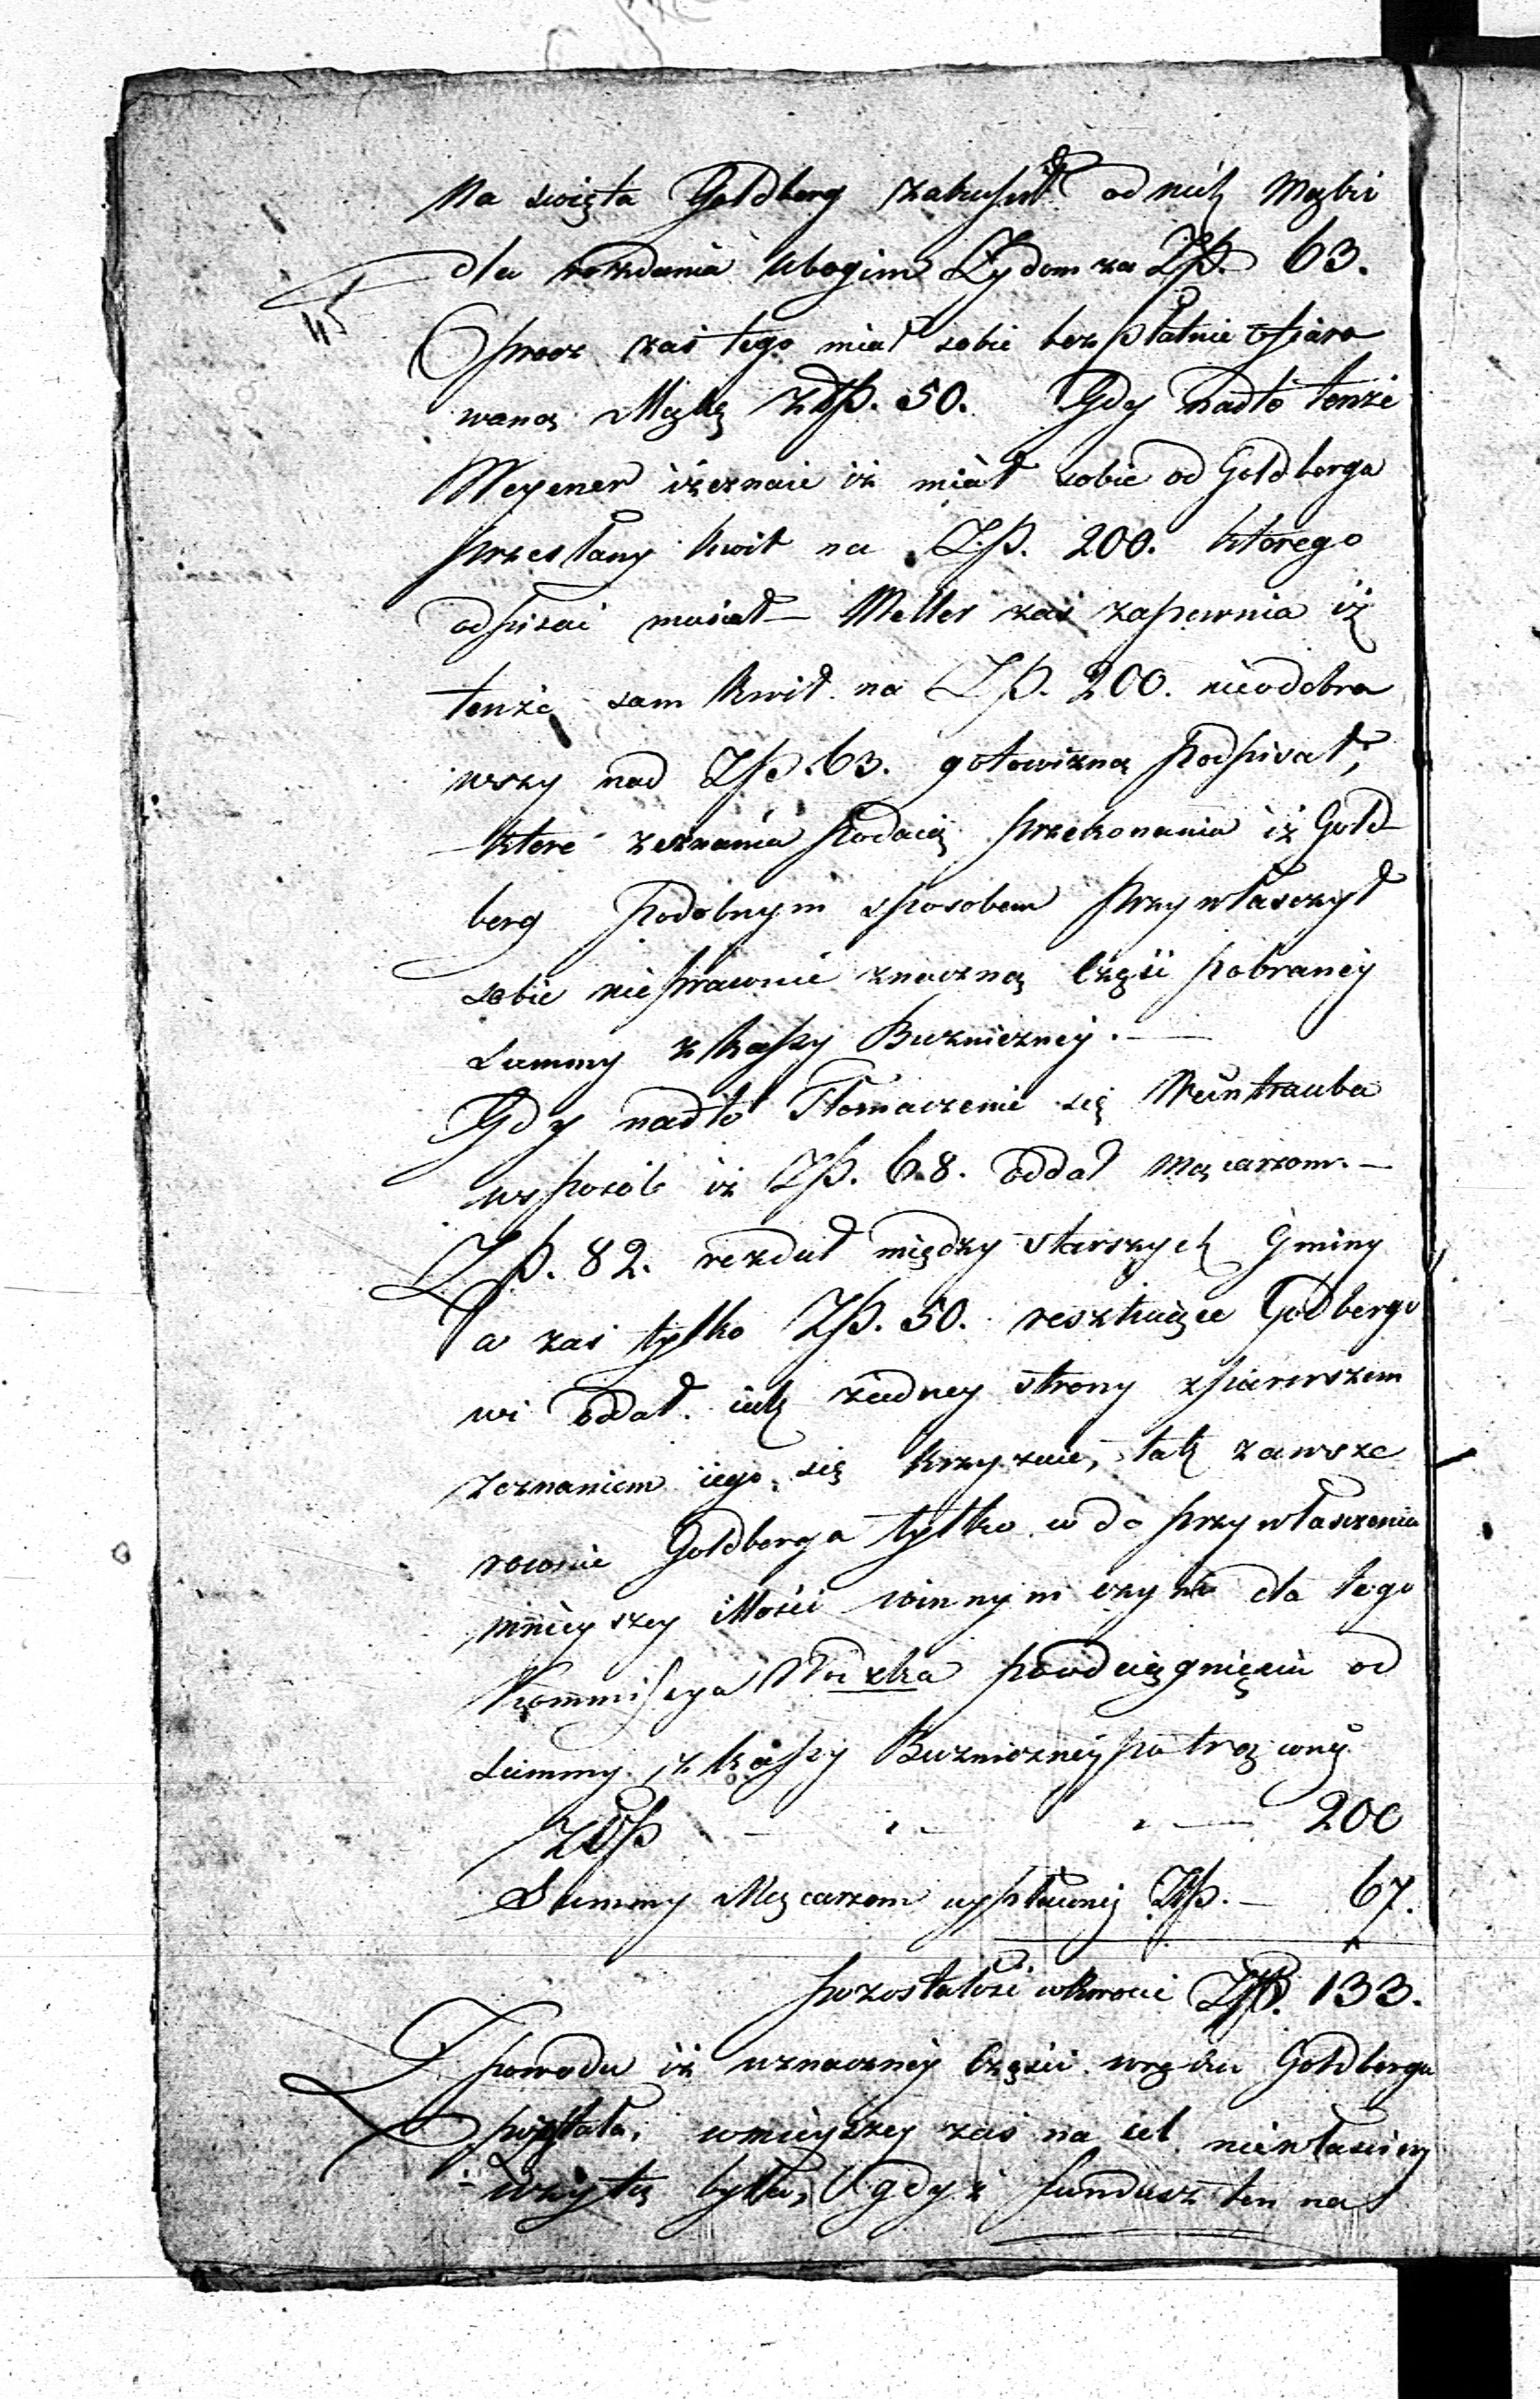 Na swięta Goldberg zakupił od nich Mąki
dla rozdania ubogim Żydom za Zp. 63.
Oprocz zaś tego miał sobie bezpłatnie ofiaro
waną Mąkę Złp. 50. Gdy nadto tenże
Meyener iżeznaie iż miał sobie od Goldberga
przesłany kwit na Zp. 200. ktorego
odpisać musiał — Meller zaś zapewnia iż
tenże sam kwit na Zp. 200. nieodebra
wszy nad Zp. 63. gotowizną podpisał,
ktore zeznania podaią przekonania iż Gold
berg podobnym sposobem przywłasczył
sobie nieprawnie znaczną część pobraney
summy z kassy Buzniczney. —
Gdy nadto Tłomaczenie się Weintrauba
wsposób iż Zp. 68. oddał mącarzom. —
Zp. 82. rozdał między starszych Gminy
a zaś tylko Zp. 50. resztuiące Goldbergo
wi oddał. iak żadney strony zpierwszem
zeznaniem iego się krzyżuie, tak zawsze
rownie Goldberga tylko do przywłasczenia
mnieyszey ilości winnym czyni dla tego
Kommissya po odciągnięciu od
summy z kassy Buzniczney potrąconey
Złp — — 200
Summy Mącarzom wypłaconey Zp. — 67.
pozostałość wkwocie Zp. 133.
Z powodu iż wznaczney Części wręku Goldberga
pozostała, wmnieyszey zaś na cel niewłasciwy
użytą była, gdyż fundusz ten na